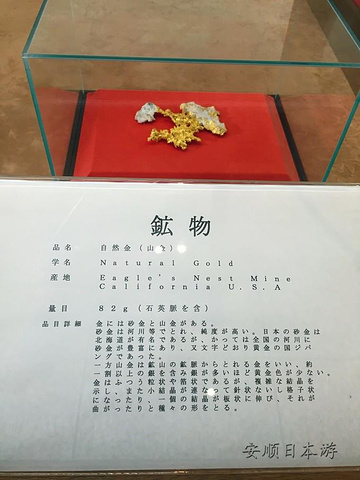 鉱物
品名 自然金（山金）
学名 Natural Gold
産地 Eagle's Nest Mine
California U.S.A
量目 82g（石英脈を含）
品目詳細 金には砂金と山金がある。
砂金は河川等でとれ、純度が高い。日本の砂金は
北海道が有名であるが、かつては全国の河川に
砂金が豊富にあり、又文字どおり黄金の国ジパ
ングであった。
一方山金は鉱山の鉱脈からとれる金をいい、約
一割以上の銀を含み銀が多いほど黄金色が少ない。
金はふつう粒や箔状であるが、複雑な結晶を
示し、ったり小結晶が連なって針状ないし格子状
になったりと、個々の結晶が板状に伸び、それが
曲がったりと種々の形をとる。
安顺日本游